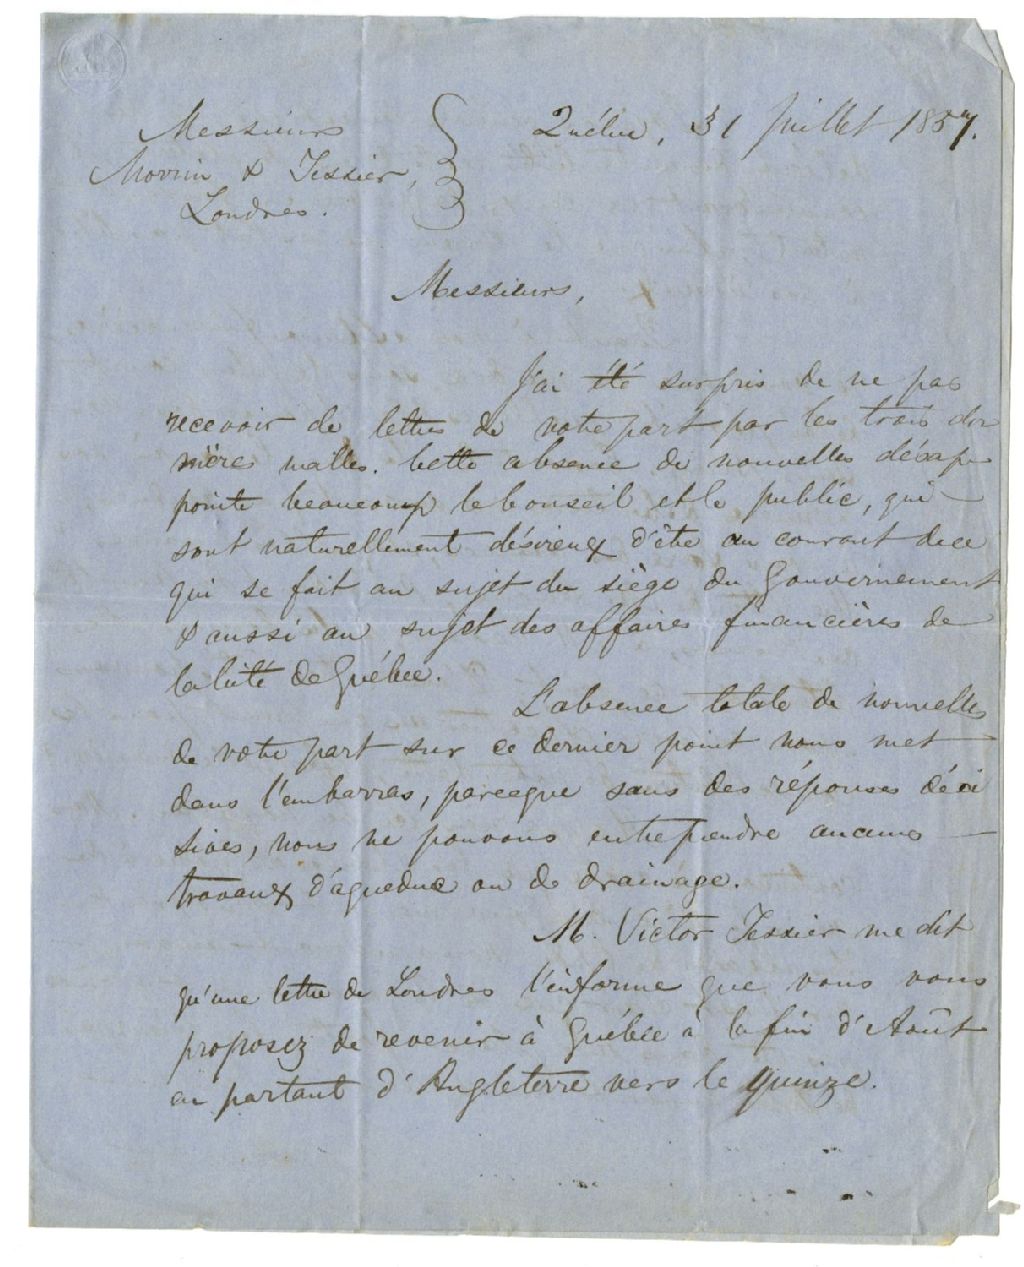 Québec, 31 Juillet 1857.
Messieurs
Morrin & Tessier,
Londres.
Messieurs,
J'ai été surpris de ne pas
recevoir de lettres de votre part par les trois der
nières malles. Cette absence de nouvelles désap-
pointe beaucoup le Conseil et le public, qui
sont naturellement désireux d'être au courant de ce
qui se fait au sujet du siège du Gouvernement
& aussi au sujet des affaires financières de
la Cité de Québec.
L'absence totale de nouvelles
de votre part sur ce dernier point nous met
dans l'embarras, parceque sans des réponses déci
sives, nous ne pouvons entreprendre aucuns
travaux d'aqueduc ou de drainage.
M. Victor Tessier me dit
qu'une lettre de Londres l'informe que vous vous
proposez de revenir à Québec à la fin d'Août
en partant d'Angleterre vers le quinze.